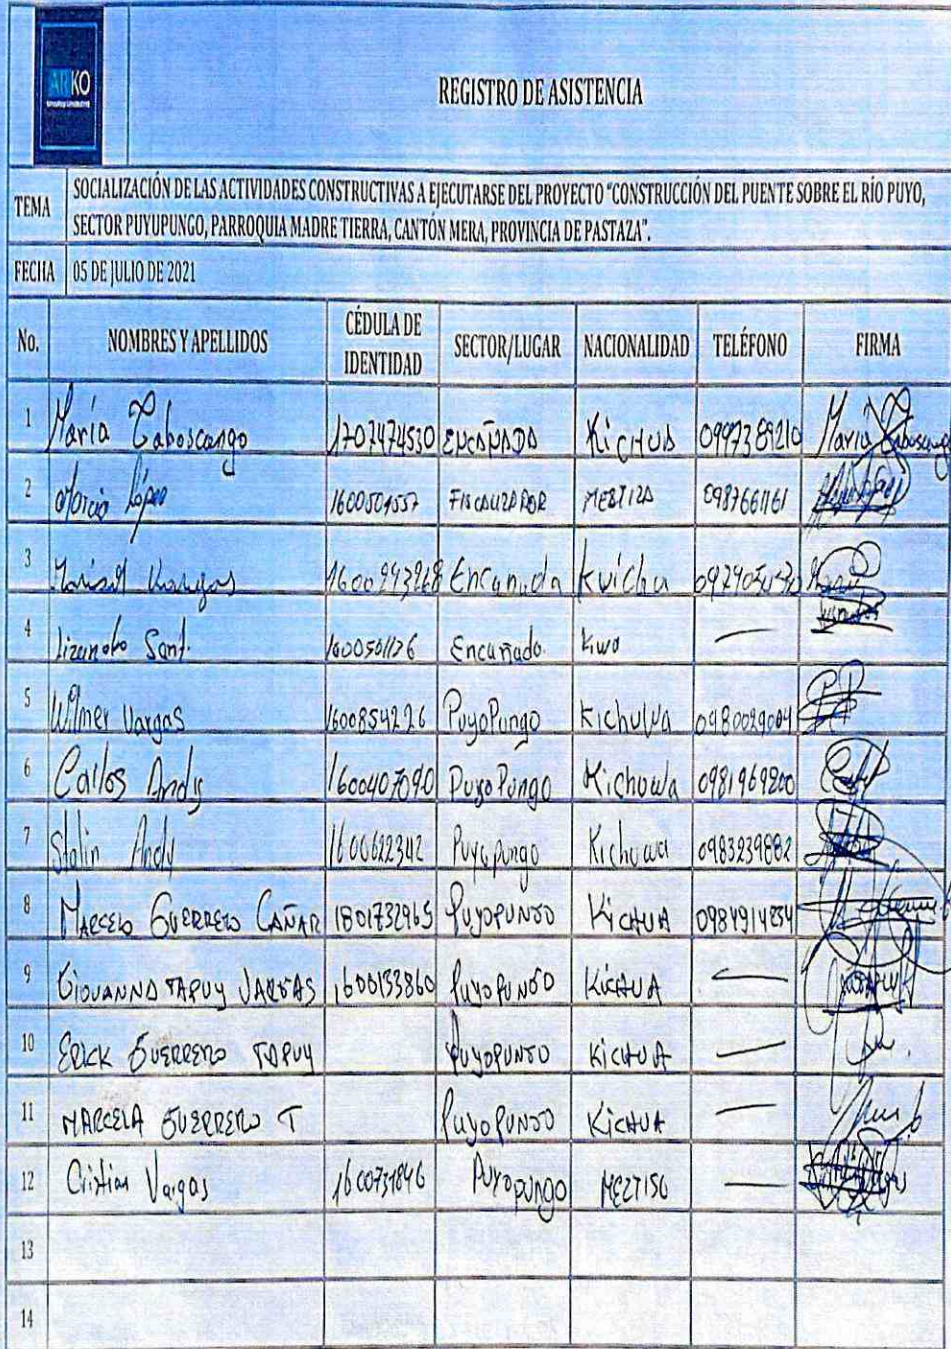 ARKO
REGISTRO DE ASISTENCIA
TEMA
SOCIALIZACIÓN DE LAS ACTIVIDADES CONSTRUCTIVAS A EJECUTARSE DEL PROYECTO "CONSTRUCCIÓN DEL PUENTE SOBRE EL RÍO PUYO,
SECTOR PUYUPUNGO, PARROQUIA MADRE TIERRA, CANTÓN MERA, PROVINCIA DE PASTAZA".
FECHA 05 DE JULIO DE 2021
No. NOMBRES Y APELLIDOS CÉDULA DE IDENTIDAD SECTOR/LUGAR NACIONALIDAD TELÉFONO FIRMA
1 María Caboscango 1707474530 ENCAÑADA KicHUA 0997389210 María Caboscango
2 López 1600504557 FISCALIZADOR MESTIZA 0987661161
3 Marisol Vargas 1600943268 Encanada Kuichua
4 Sant. 1600501126 Encañado Kiwo —
5 Wilmer Vargas 1600854226 PuyoPungo Kichuwa 0980029004
6 Carlos Andy 1600407090 PuyoPungo Kichuwa 0981969200
7 Stalin Andy 1600622342 Puyopungo Kichuwa 0983239882
8 MARCELO GUERRERO CAÑAR 1801732965 PUYOPUNGO KicHUA 0984914234
9 GIOVANNA TAPUY VARGAS 1600133860 PUYOPUNGO KicHUA —
10 ERICK GUERRERO TAPUY PUYOPUNGO KicHUA —
11 MARCELA GUERRERO T PUYOPUNGO KicHUA —
12 Cristian Vargas 1600731846 Puyopungo MEZTISO —
13
14